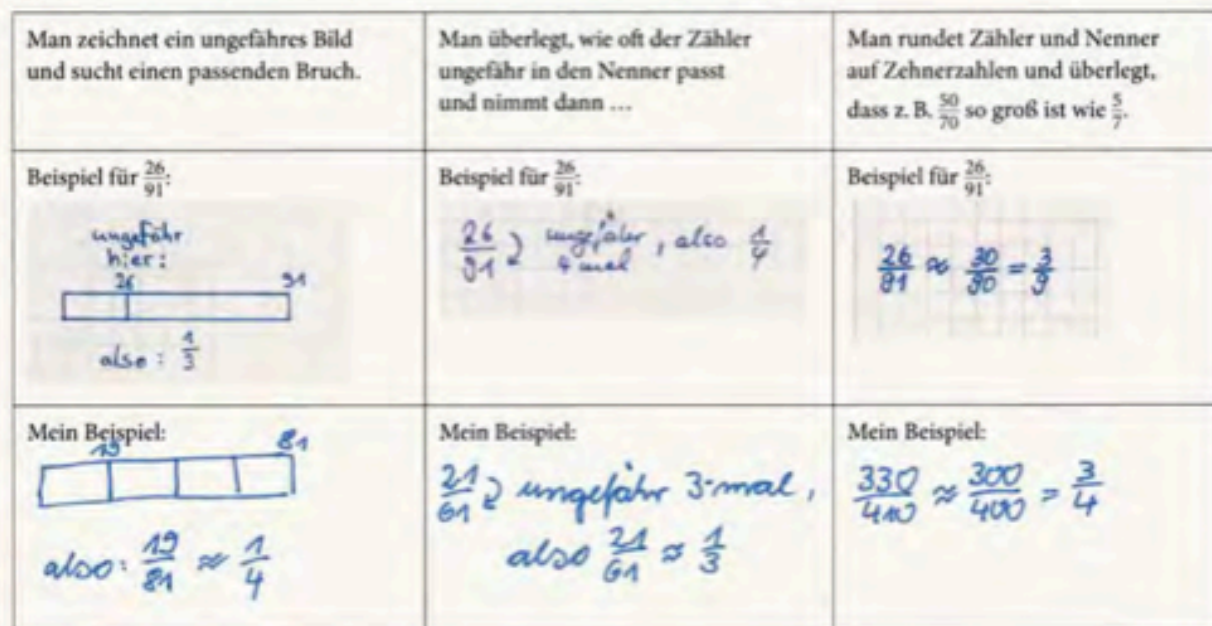 Man zeichnet ein ungefähres Bild
und sucht einen passenden Bruch.
Man überlegt, wie oft der Zähler
ungefähr in den Nenner passt
und nimmt dann …
Man rundet Zähler und Nenner
auf Zehnerzahlen und überlegt,
dass z. B. 50/70 so groß ist wie 5/7.
Beispiel für 26/91:
ungefähr
hier:
26 91
also: 1/3
Beispiel für 26/91:
26/91 ungefähr
4 mal, also 1/4
Beispiel für 26/91:
26/91 ≈ 30/90 = 3/9
Mein Beispiel:
19 81
also: 19/81 ≈ 1/4
Mein Beispiel:
21/61 ungefähr 3-mal,
also 21/61 ≈ 1/3
Mein Beispiel:
330/410 ≈ 300/400 = 3/4